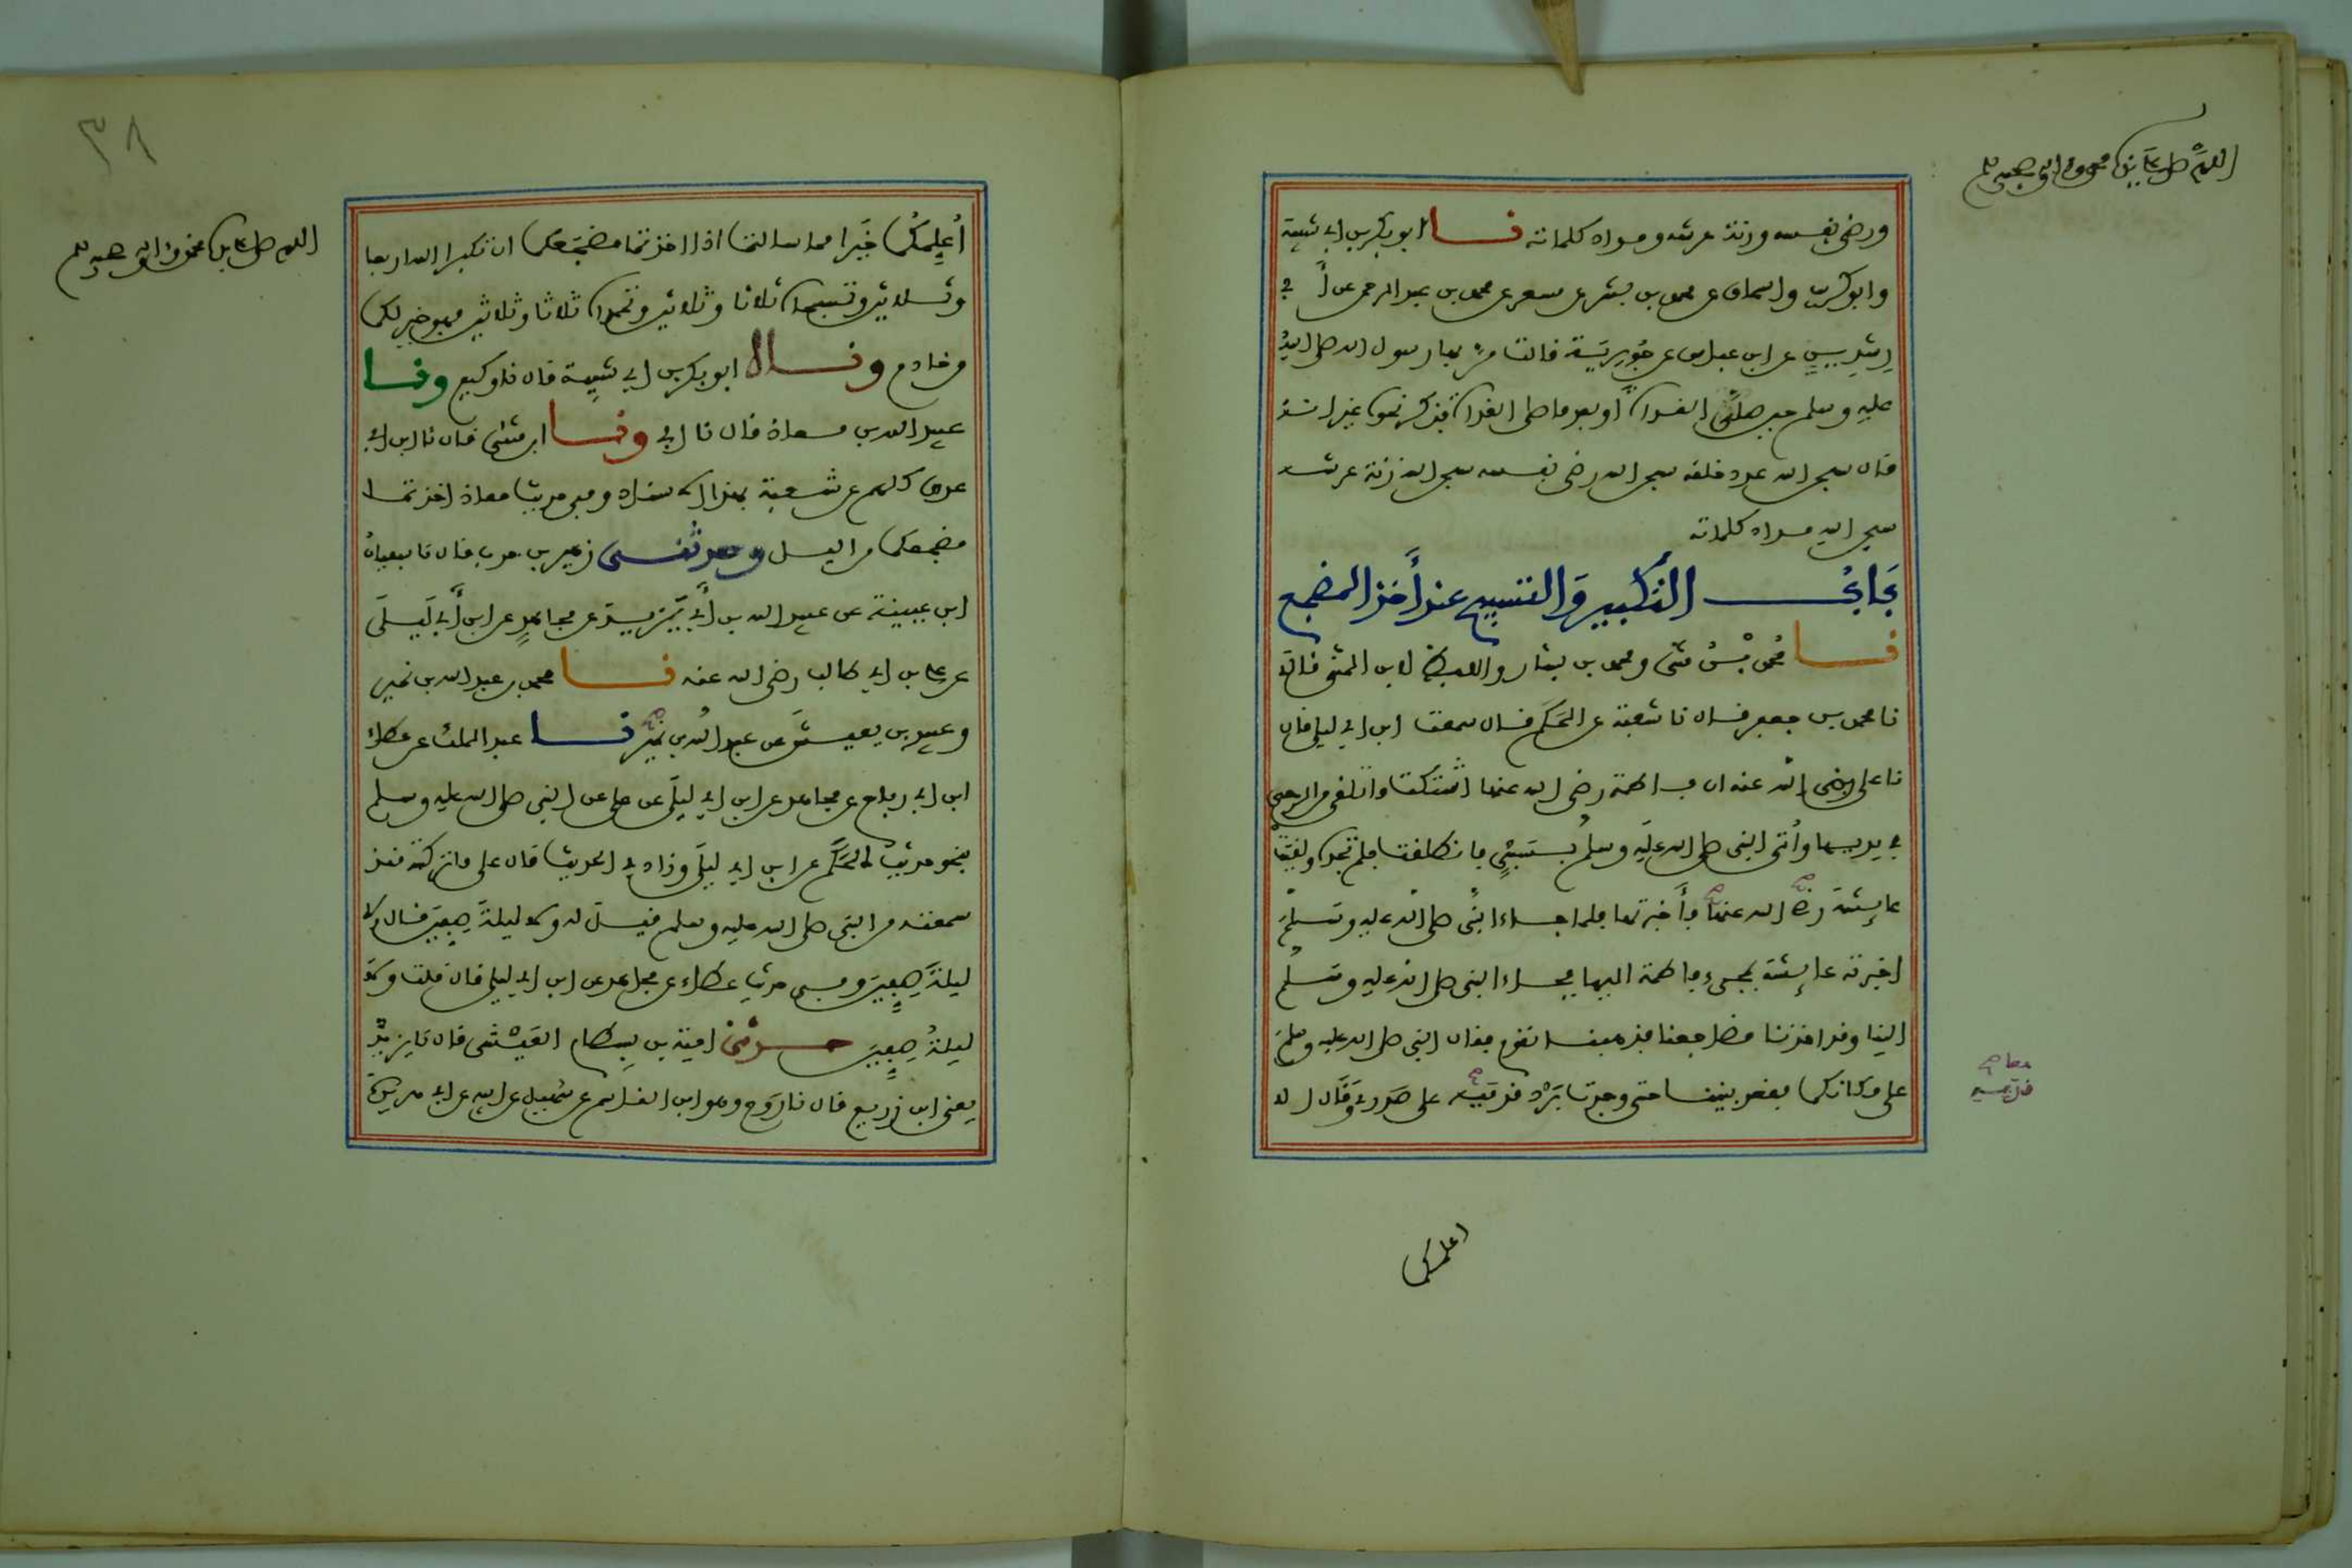 اللهم صل على نبينا محمد وآله وصحبه وسلم
ورضى نفسه وزنة عرشه ومداد كلماته نا ابو بكر بن ابي شيبة
وابو كريب واسحاق عن محمد بن بشر عن مسعر عن محمد بن عبد الرحمن عن أبي
رشدين عن ابن عباس عن جويرية قالت مر بها رسول الله صلى الله
عليه وسلم حين صلى الغداة أو بعد ما صلى الغداة فذكر نحوه غير انه
قال سبحن الله عدد خلقه سبحن الله رضى نفسه سبحن الله زنة عرشه
سبحن الله مداد كلماته
باب التكبير والتسبيح عند أخذ المضجع
نا محمد بن مثنى ومحمد بن بشار واللفظ لابن المثنى قالا
نا محمد بن جعفر قال نا شعبة عن الحكم قال سمعت ابن ابي ليلى قال
نا على رضى الله عنه ان فاطمة رضى الله عنها اشتكت ما تلقى من الرحى
في يديها وأتى النبى صلى الله عليه وسلم بسبي فانطلقت فلم تجده ولقيت
عايشة رضى الله عنها فأخبرتها فلما جاء النبي صلى الله عليه وسلم
اخبرته عايشة بمجىء فاطمة اليها فجاء النبى صلى الله عليه وسلم
الينا وقد اخذنا مضاجعنا فذهبنا نقوم فقال النبى صلى الله عليه وسلم
على مكانكما فقعد بيننا حتى وجدت برد قدميه على صدري وقال الا
اعلمكما
٣٨
اللهم صل على نبينا محمد وآله وصحبه وسلم
أعلمكما خيرا مما سالتما اذا اخذتما مضجعكما ان تكبرا الله اربعا
وثلاثين وتسبحاه ثلاثا وثلاثين وتحمداه ثلاثا وثلاثين فهو خير لكما
من خادم ونا ابو بكر بن ابي شيبة قال نا وكيع ونا
عبيد الله بن معاذ قال نا ابي ونا ابن مثنى قال نا ابن ابي
عدى كلهم عن شعبة بهذا الاسناد وفى حديث معاذ اخذتما
مضجعكما من اليل وحدثنى زهير بن حرب قال نا سفيان
ابن عيينة عن عبيد الله بن أبي يزيد عن مجاهد عن ابن أبي ليلى
عن على بن ابي طالب رضى الله عنه نا محمد بن عبد الله بن نمير
وعبيد بن يعيش عن عبد الله بن نمير نا عبد الملك عن عطاء
ابن ابي رباح عن مجاهد عن ابن ابي ليلى عن على عن النبى صلى الله عليه وسلم
بنحو حديث الحكم عن ابن ابي ليلى وزاد في الحديث قال على ما تركته منذ
سمعته من النبى صلى الله عليه وسلم فيل له ولا ليلة صفين قال ولا
ليلة صفين وفى حديث عطاء عن مجاهد عن ابن ابي ليلى قال قلت ولا
ليلة صفين حدثنى امية بن بسطام العيشى قال نا يزيد
يعنى ابن زريع قال نا روح وهو ابن القاسم عن سهيل عن ابيه عن ابي هريرة